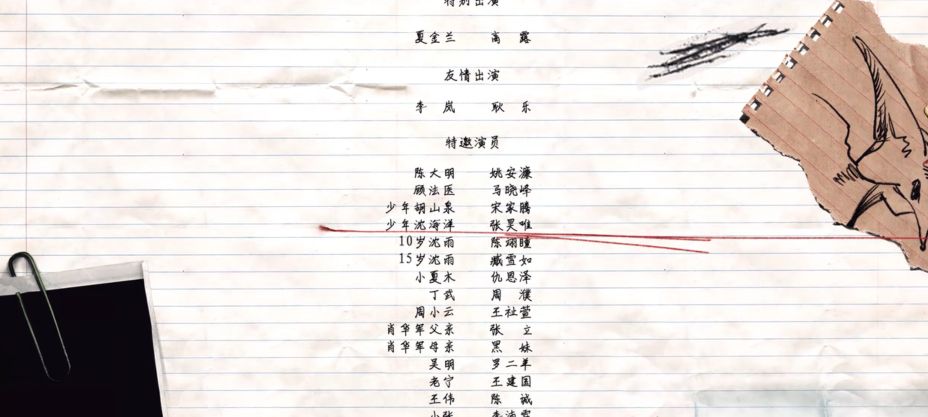 特别出演
夏金兰 高露
友情出演
李岚 耿乐
特邀演员
陈大明 姚安濂
顾法医 马晓峰
少年胡山泉 宋家腾
少年沈海洋 张昊唯
10岁沈雨 陈翊曈
15岁沈雨 臧雪如
小夏木 仇思泽
丁武 周濮
周小云 王社萱
肖华军父亲 张立
肖华军母亲 黑妹
吴明 罗二羊
老宁 王建国
王伟 陈诚
小张